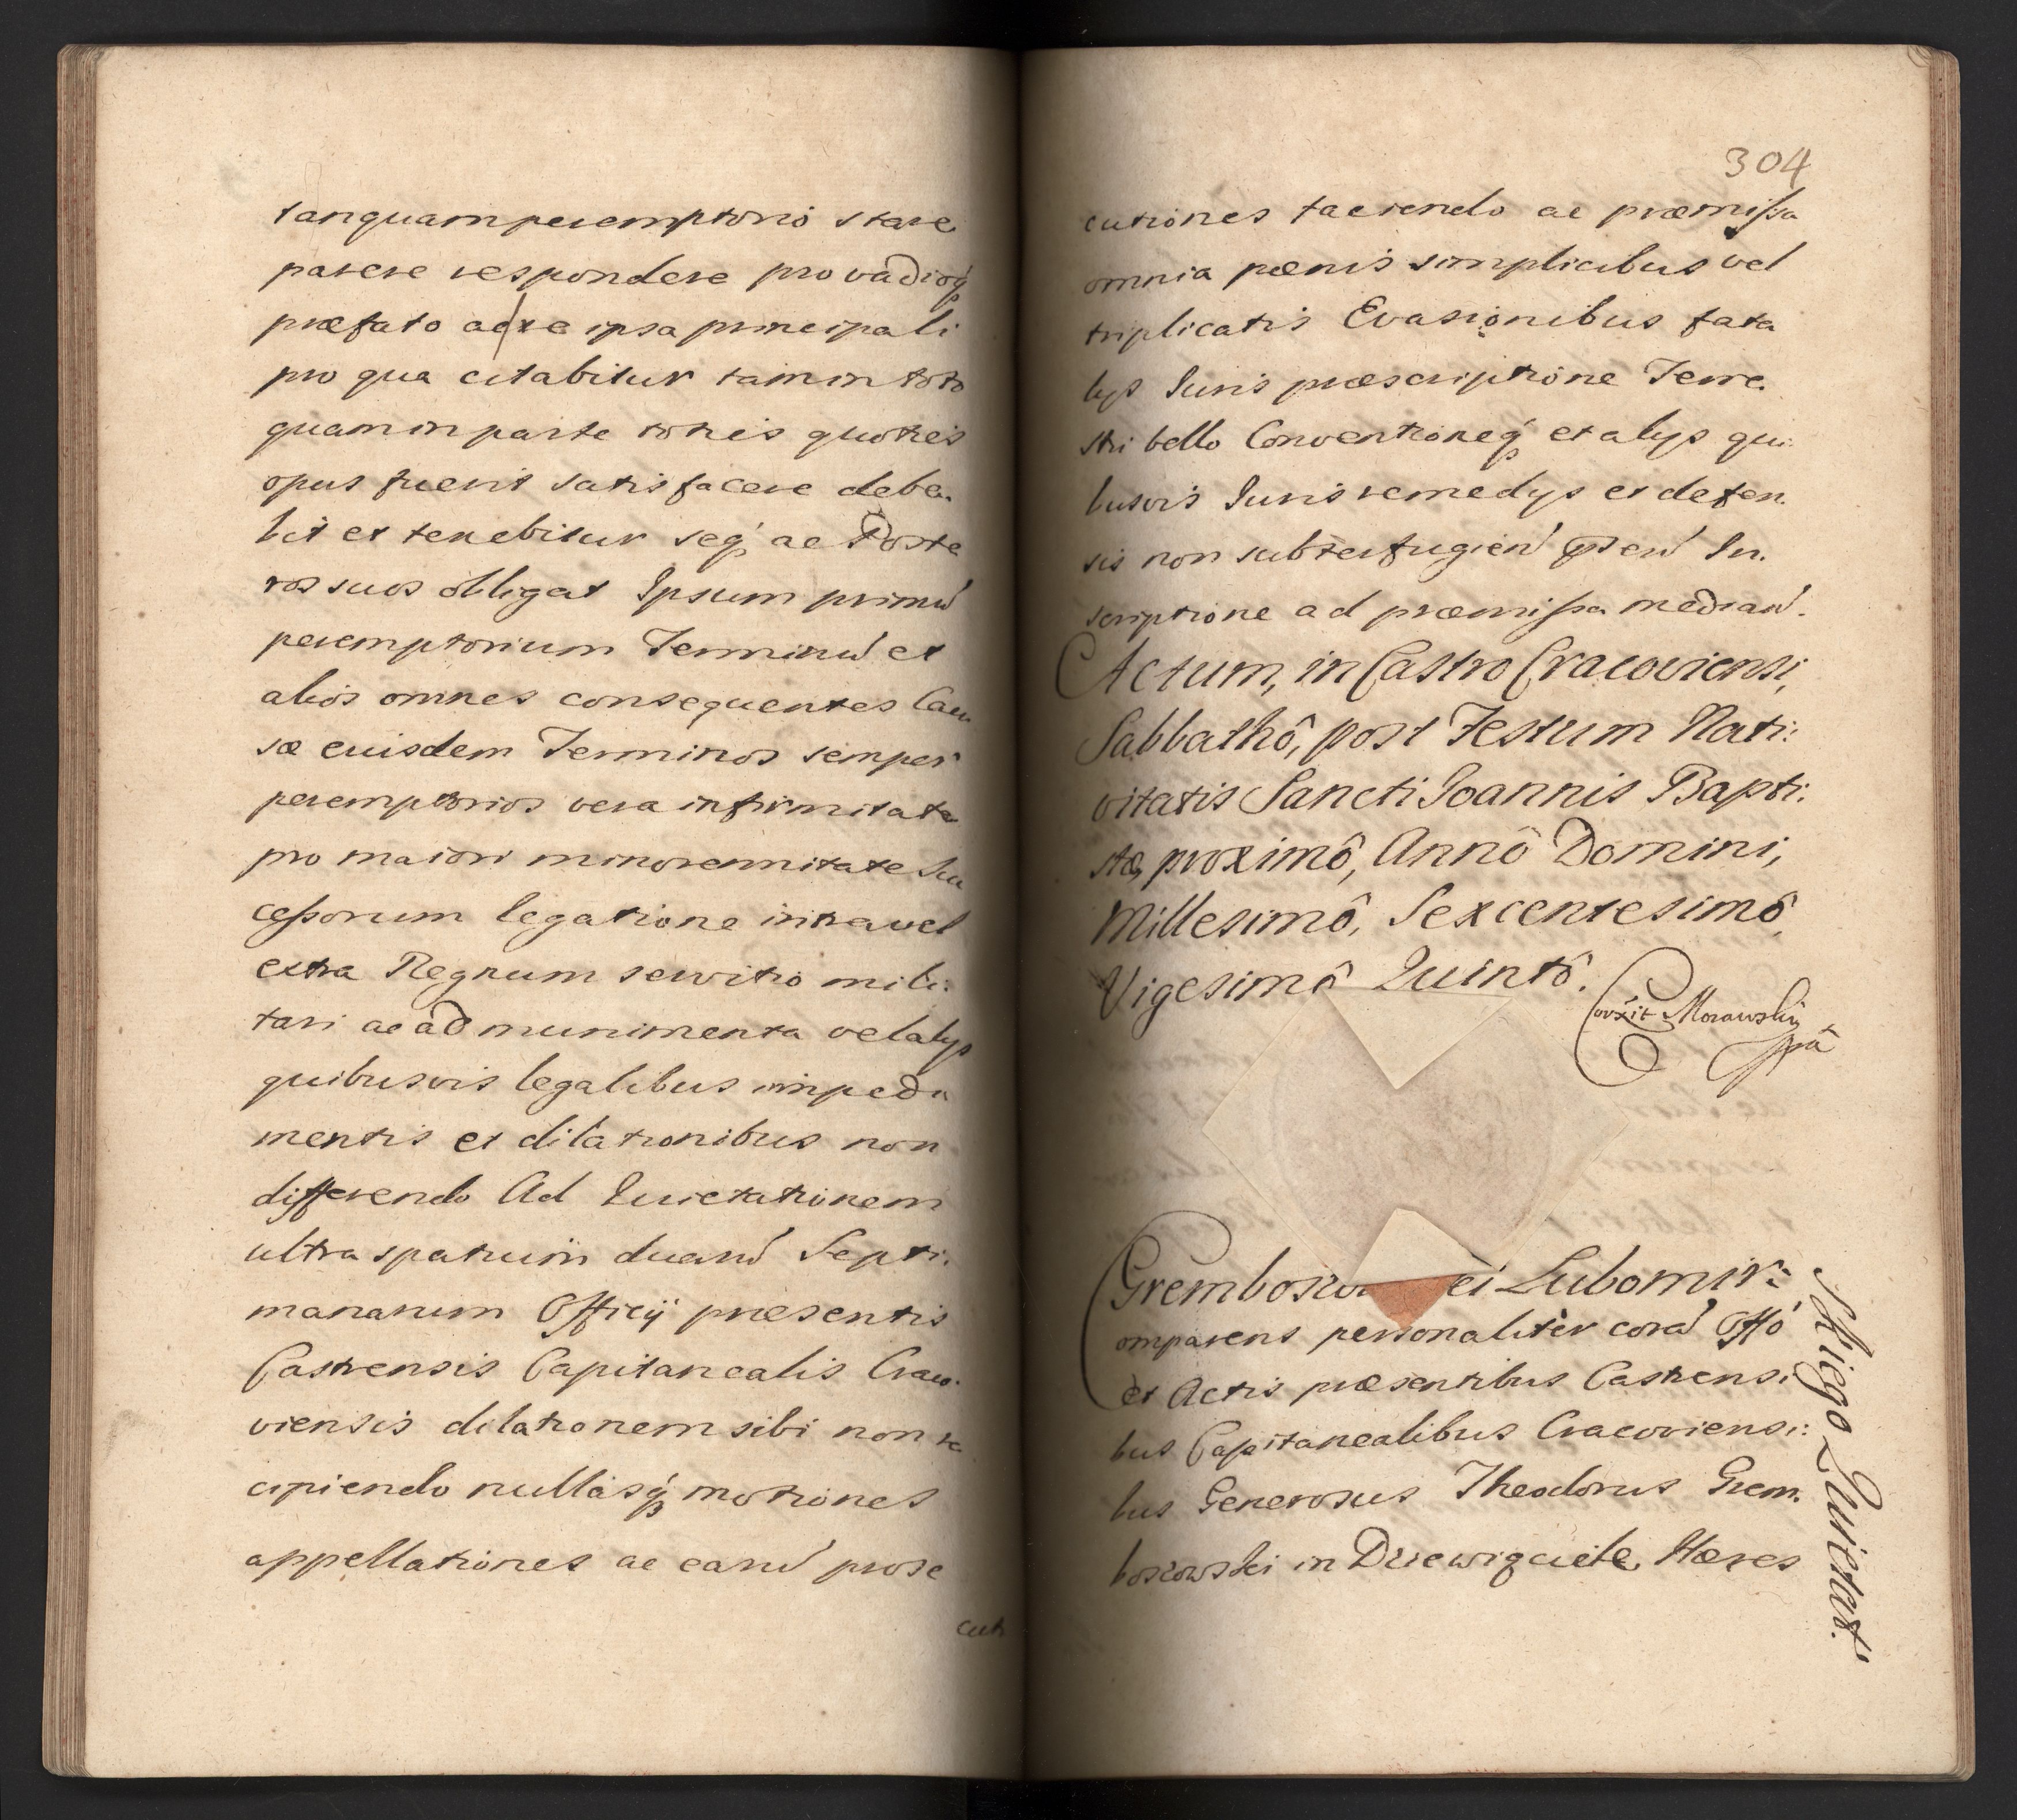 tanquam peremptorio stare
parere respondere pro vadioq́
præfato ac re ipsa principali
pro qua citabitur tam in toto
quam in parte toties quoties
opus fuerit satisfacere debe.
bit et tenebitur seq́ ac Poste
ros suos obligat Ipsum primũ
peremptorium Terminũ et
alios omnes consequentes Cau
sæ euisdem Terminos semper
peremptorios vera infirmitate
pro maiori minorennitate Suc
cessorum legatione intra vel
extra Regnum servitio mili:
tari ac ad munimenta vel alys
quibusvis legalibus impedi
mentis et dilationibus non
differendo Ad Quietationem
ultra spatium duarũ Septi.
manarum Officij præsentis
Castrensis Capitanealis Craco.
viensis dilationem sibi non re
cipiendo nullasq́ motiones
appellationes ac earũ prose
cuti
304
cutiones faciendo ac præmissa
omnia pœnis simplicibus vel
triplicatis Evasionibus fata
lys Iuris præscriptione Terre.
stri bello Conventioneq́ et alys qui:
busvis Iuris remedys et defen.
sis non subterfugieñ pñteñ In.
scriptione ad præmissa mediañ.
Actum, in Castro Cracoviensi,
Sabbathô, post Festum Nati:
vitatis Sancti Ioannis Bapti:
stæ, proximô, Annô Domini,
Millesimô, Sexcentesimô,
Vigesimô Quintô.
Corxit Morawsky
mpã
Gremboszow ei Lubomir:
skiego Quietat.
omparens personaliter corã Offô
et Actis præsentibus Castrensi
bus Capitanealibus Cracoviensi:
bus Generosus Theodorus Grem.
boszowski in Drzewiąciele, Hæres